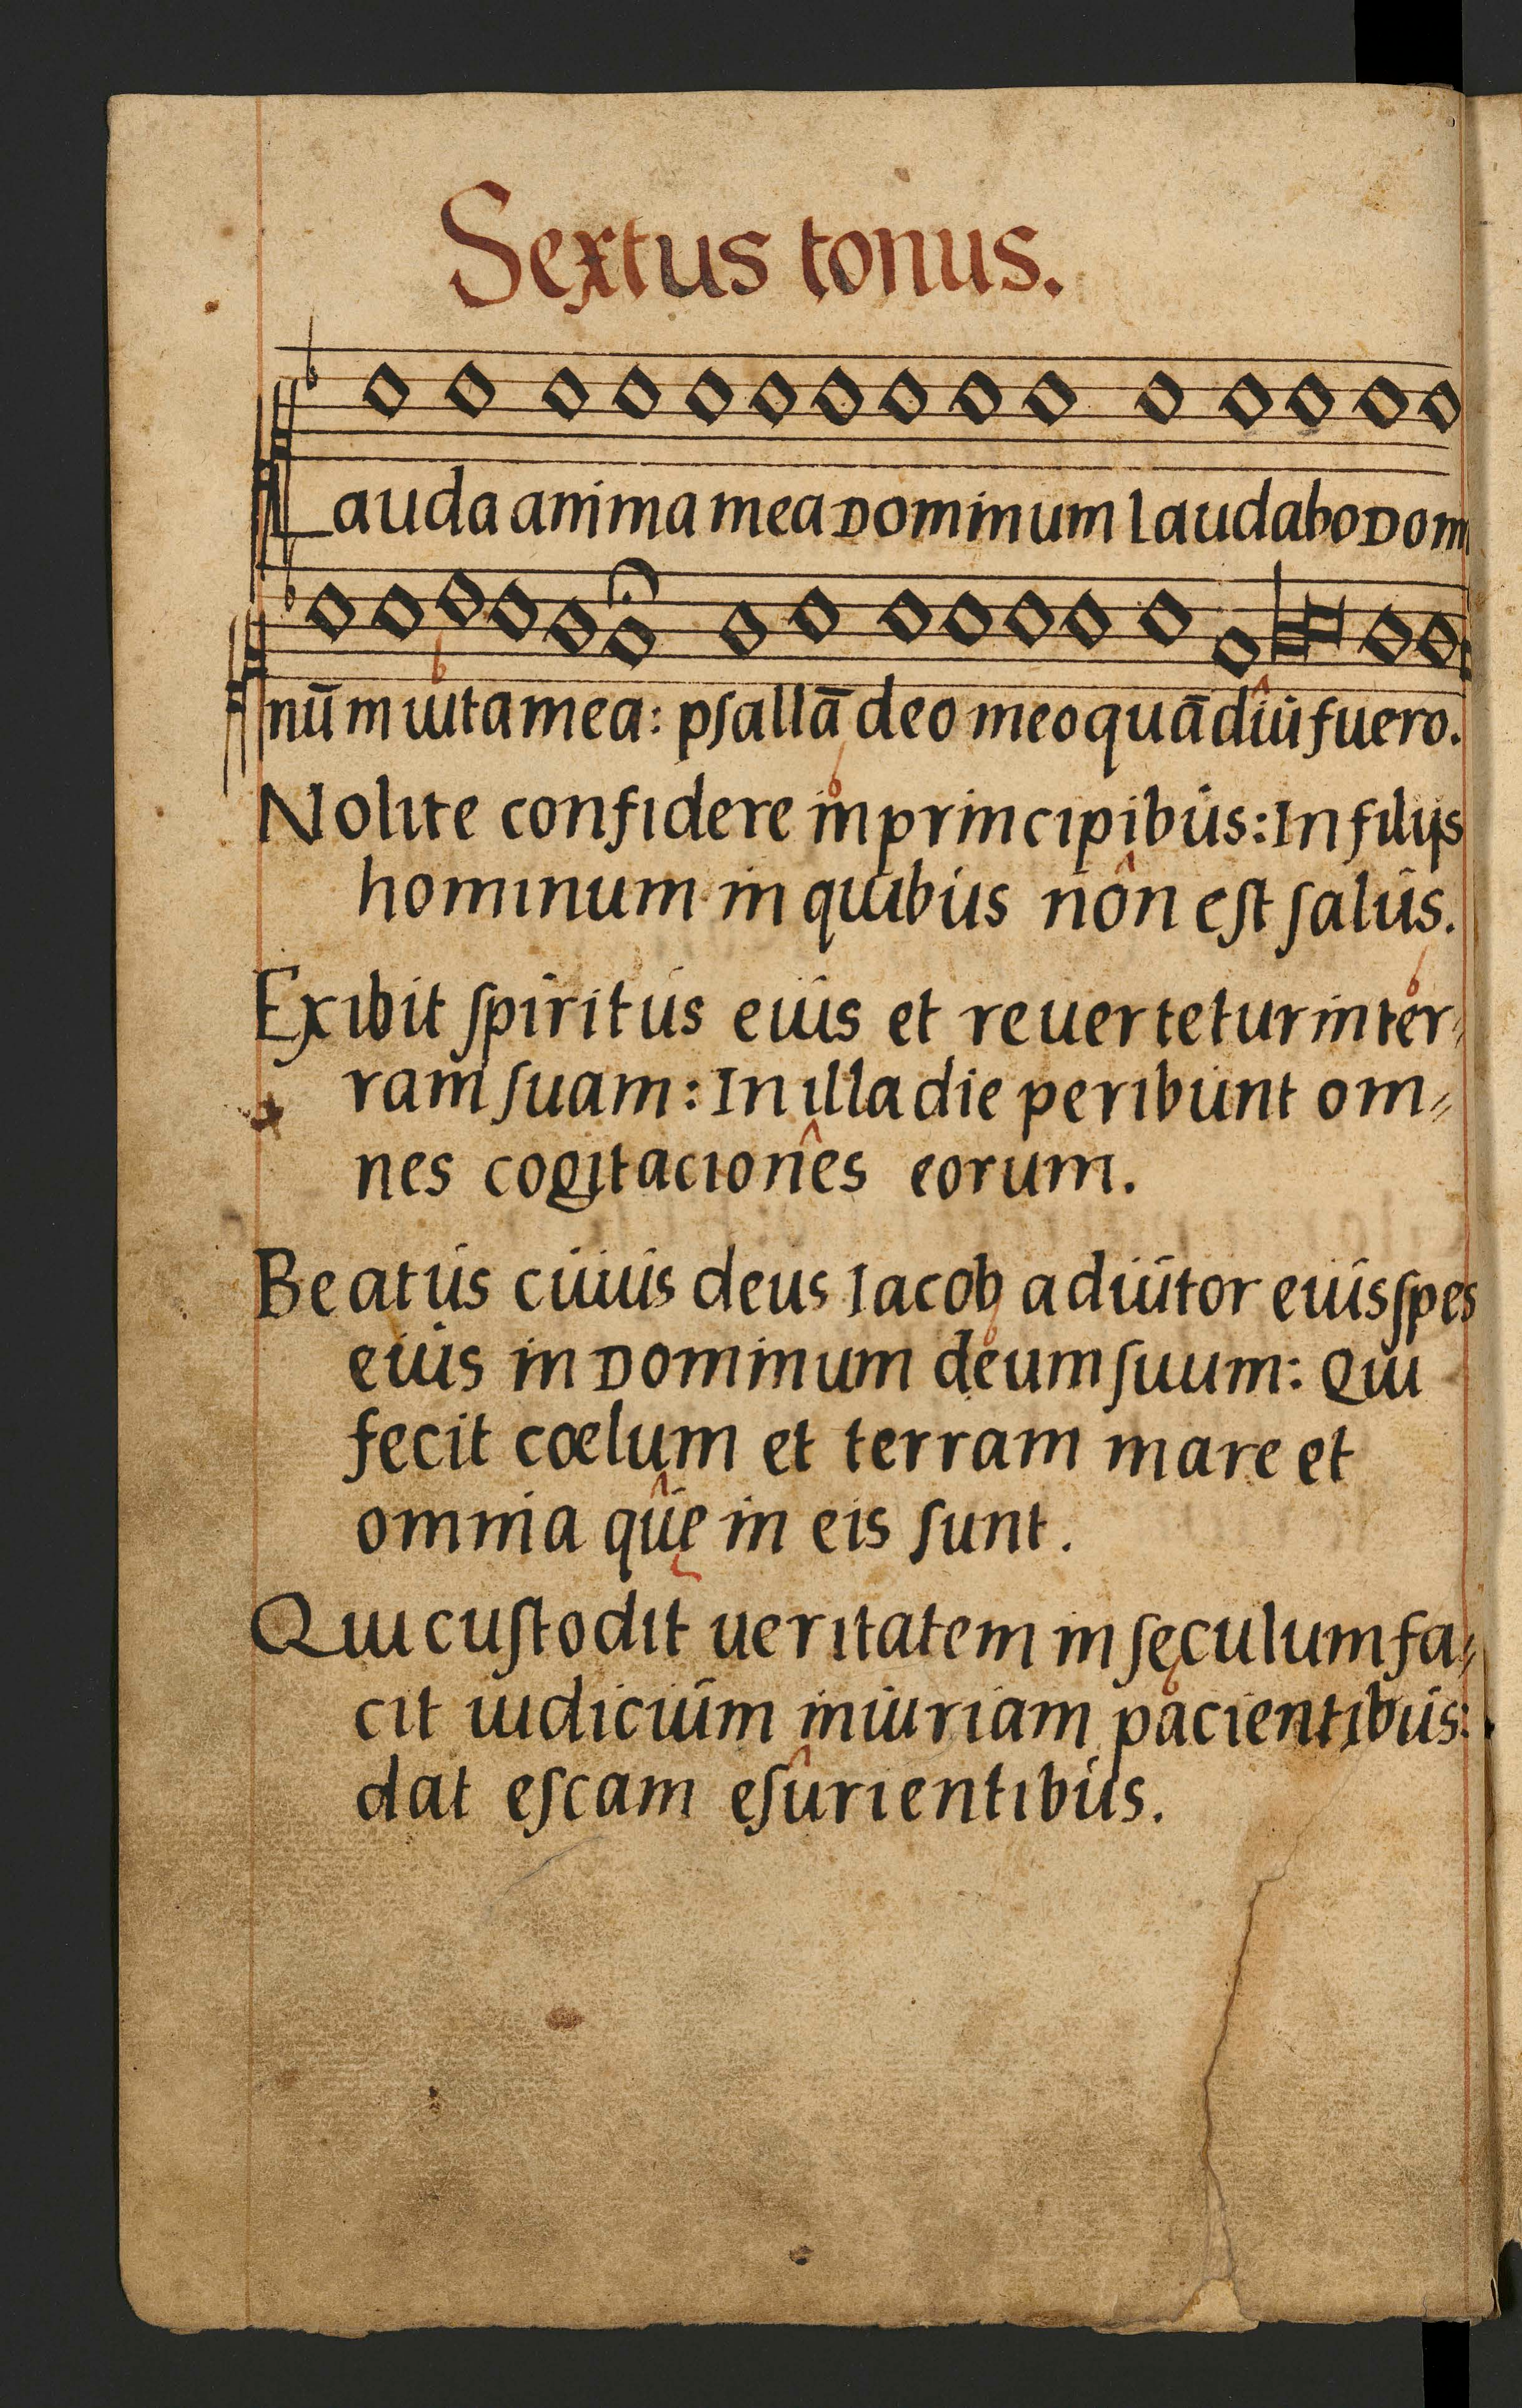 Sextus tonus.
Lauda anima mea Dominum laudabo Dom
nū m uita mea: pſallā deo meo quādiu fuero.
Nolite confidere in principibus: In filijs
hominum in quibus non eſt ſalus.
Exibit ſpiritus eius et reuertetur in ter⸗
ram ſuam: In illa die peribunt om⸗
nes cogitaciones eorum.
Beatus cuius deus Iacob adiutor eius ſpes
eius in Dominum deum ſuum: Qui
fecit cœlum et terram mare et
omnia quę in eis ſunt.
Qui cuſtodit ueritatem in ſęculum fa⸗
cit iudicium iniuriam pacientibus:
dat eſcam eſurientibus.